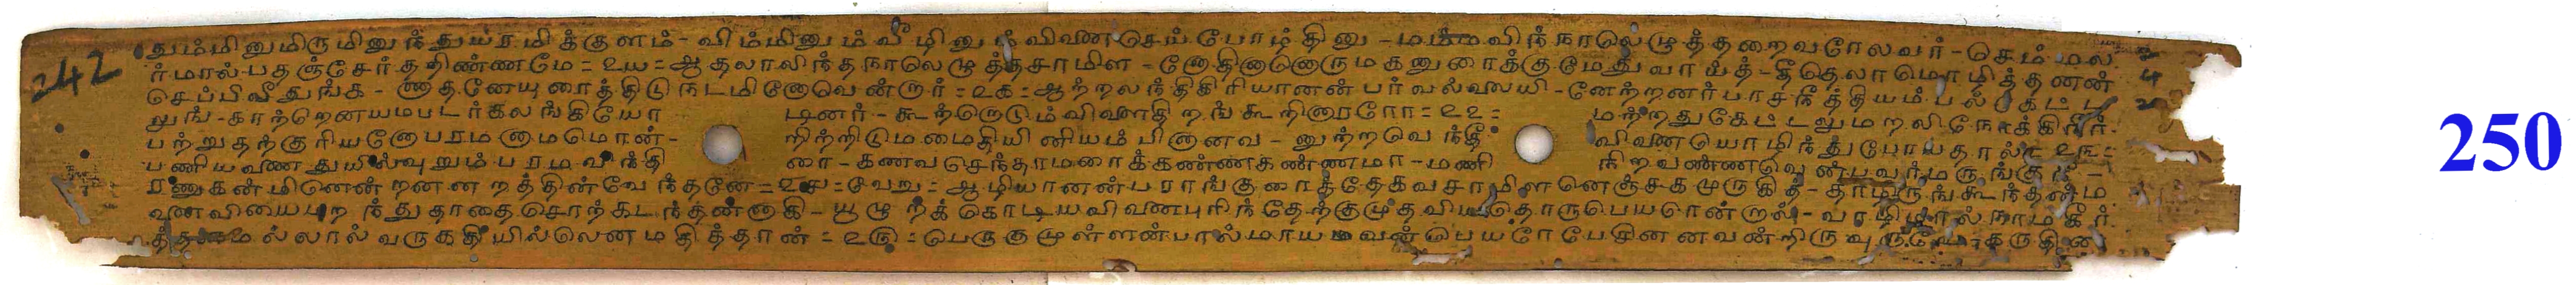 242
தும்மினுமிருமினுந்துயரமிக்குளம்-விம்மினும்வீழினும்விணைசெய்போழ்தினு-மம்மவிந்நாலெழுத்தறைவரேலவர்-செம்மல
ர்மால்பதஞ்சேர்ததிண்ணமே=உய=ஆதலாலிந்தநாலெழுத்தசாமிள-னோதினானொருமகனுரைக்குமேதுவாய்த்-தீதெலாமொழித்தனன்
செப்பிவீதுங்க-ணாதனேயுரைத்திடுநடமினோவென்றார்=உக=ஆற்றலந்திகிரியானன்பர்வல்வலயி-னேற்றனர்பாசநீத்தியம்பல்கெட்ட
றுங்-காற்றெனயமபடர்கலங்கியோ டினர்-கூற்றொடும்விணாதிறங்கூறினாரரோ=உஉ= மற்றதுகேட்டலுமறலிநோக்கினீர்-
பற்றுதற்குரியனோபரமனாமமொன்- றிற்றிடுமமைதியினியம்பினானவ-னுற்றவெந்தீ விணையொழிந்துபோயதால்=உ௩=
பணியணைதுயில்வுறும்பரமவந்தி ரை-கணவசெந்தாமரைக்கண்ணகண்ணமா-மணி நிறவண்ணவென்பவர்மருங்குநீ-
ரணுகன்மினென்றனனறத்தின்வேந்தனே=உ௪=வேறு=ஆழியானன்பராங்குரைத்தேகவசாமிளனெஞ்சகமுருகித்-தாழருங்கூடந்தன்ம
ணைவியைபுறந்துதாதைசொற்கடந்தன்னாகி-யூழுறக்கொடியவிணைபுரிந்தேற்குமுதவியதொருபெயரொன்றால்-வாழிமால்நாமகீர்
த்தனமல்லால்வருகதியில்லெனமதித்தான்=உ௫=பெருகுமுள்ளன்பால்மாயமவன்பெயரேபேசினனவன்றிருவுருவே-கருதின
250